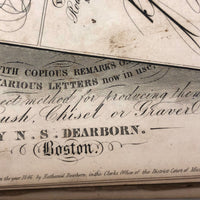 WITH COPIOUS REMARKS O
VARIOUS LETTERS now in use,
ect method for producing them
ush, Chisel or Graver
Y N. S. DEARBORN.
Boston.
in the year 1846 by Nathaniel Dearborn, in the Clerks Office of the District Court of Mas